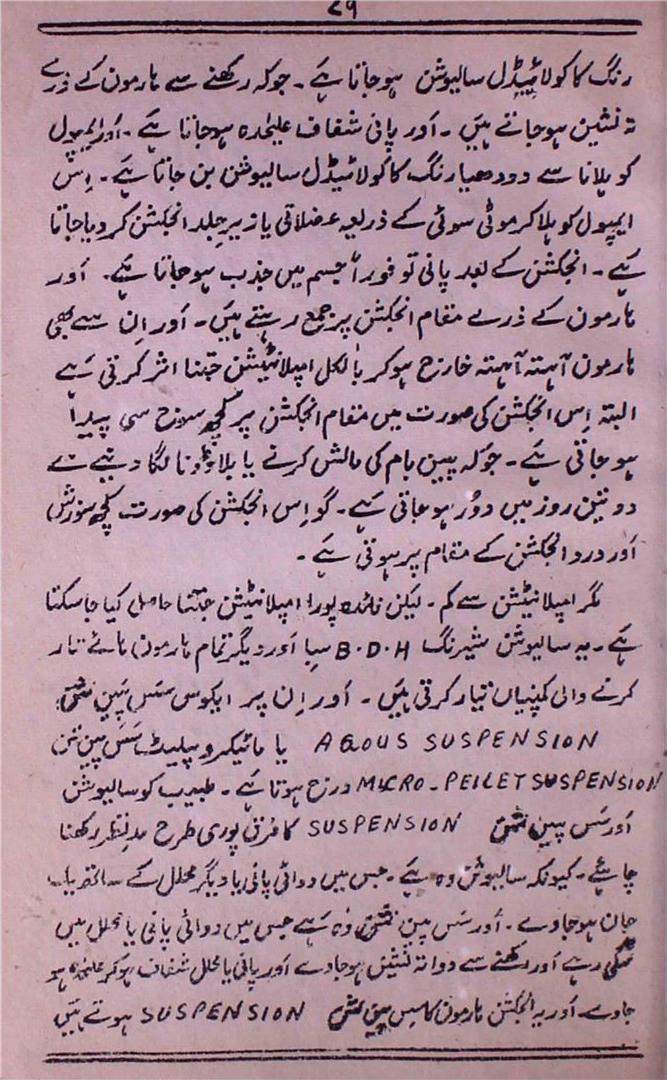 ۲۹
رنگ کا کولائیڈل سالیوشن ہوجاتا ہے۔ جوکہ رکھنے سے ہارمون کے ذرے
تہ نشین ہوجاتے ہیں۔ اور پانی شفاف علیحدہ ہوجاتا ہے۔ اور ایمپول
کو ہلانا سے دودھیا رنگ کا کولائیڈل سالیوشن بن جاتا ہے۔ اِس
ایمپول کو ہلاکر موٹی سوئی کے ذریعہ عضلاتی یا زیرِ جلد انجکشن کردیا جاتا
ہے۔ انجکشن کے بعد پانی تو فوراً جسم میں جذب ہوجاتا ہے۔ اور
ہارمون کے ذرے مقام انجکشن پر جمع رہتے ہیں۔ اور اِن سے بھی
ہارمون آہستہ آہستہ خارج ہوکر بالکل امپلانٹیشن جتنا اثر کرتی ہے
البتہ اِس انجکشن کی صورت میں مقام انجکشن پر کچھ سوزح سی پیدا
ہوجاتی ہے۔ جوکہ پین بام کی مالش کرنے یا بلاڈونا لگا دینے سے
دو تین روز میں دُور ہوجاتی ہے۔ گو اِس انجکشن کی صورت کچھ سوزش
اور درد انجکشن کے مقام پر ہوتی ہے۔
مگر امپلانٹیشن سے کم۔ لیکن فائدہ پورا امپلانٹیشن جتنا حاصل کیا جاسکتا
ہے۔ یہ سالیوشن شیرنگ B.D.H سبا اور دیگر تمام ہارمون ہائے تیار
کرنے والی کمپنیاں تیار کرتی ہیں۔ اور اِن پر ایکوس سس پین شن
AQOUS SUSPENSION یا مائیکرو پیلیٹ سَس پین شن
MICRO-PEILET SUSPENSION درج ہوتا ہے۔ طبیب کو سالیوشن
اور سَس پین شن SUSPENSION کا فرق پوری طرح مدِنظر رکھنا
چاہئے۔ کیونکہ سالیوشن وہ ہے۔ جس میں دوائی پانی یا دیگر محلل کے ساتھ یک
جان ہوجاوے۔ اور سَس پین شن وُہ ہے جس میں دوائی پانی یا محلل میں
رہے اور رکھنے سے دوا تہ نشین ہوجاوے اور پانی یا محلل شفاف ہوکر علیحدہ ہو
جاوے اور یہ انجکشن ہارمون کا سس پین شن SUSPENSION ہوتے ہیں